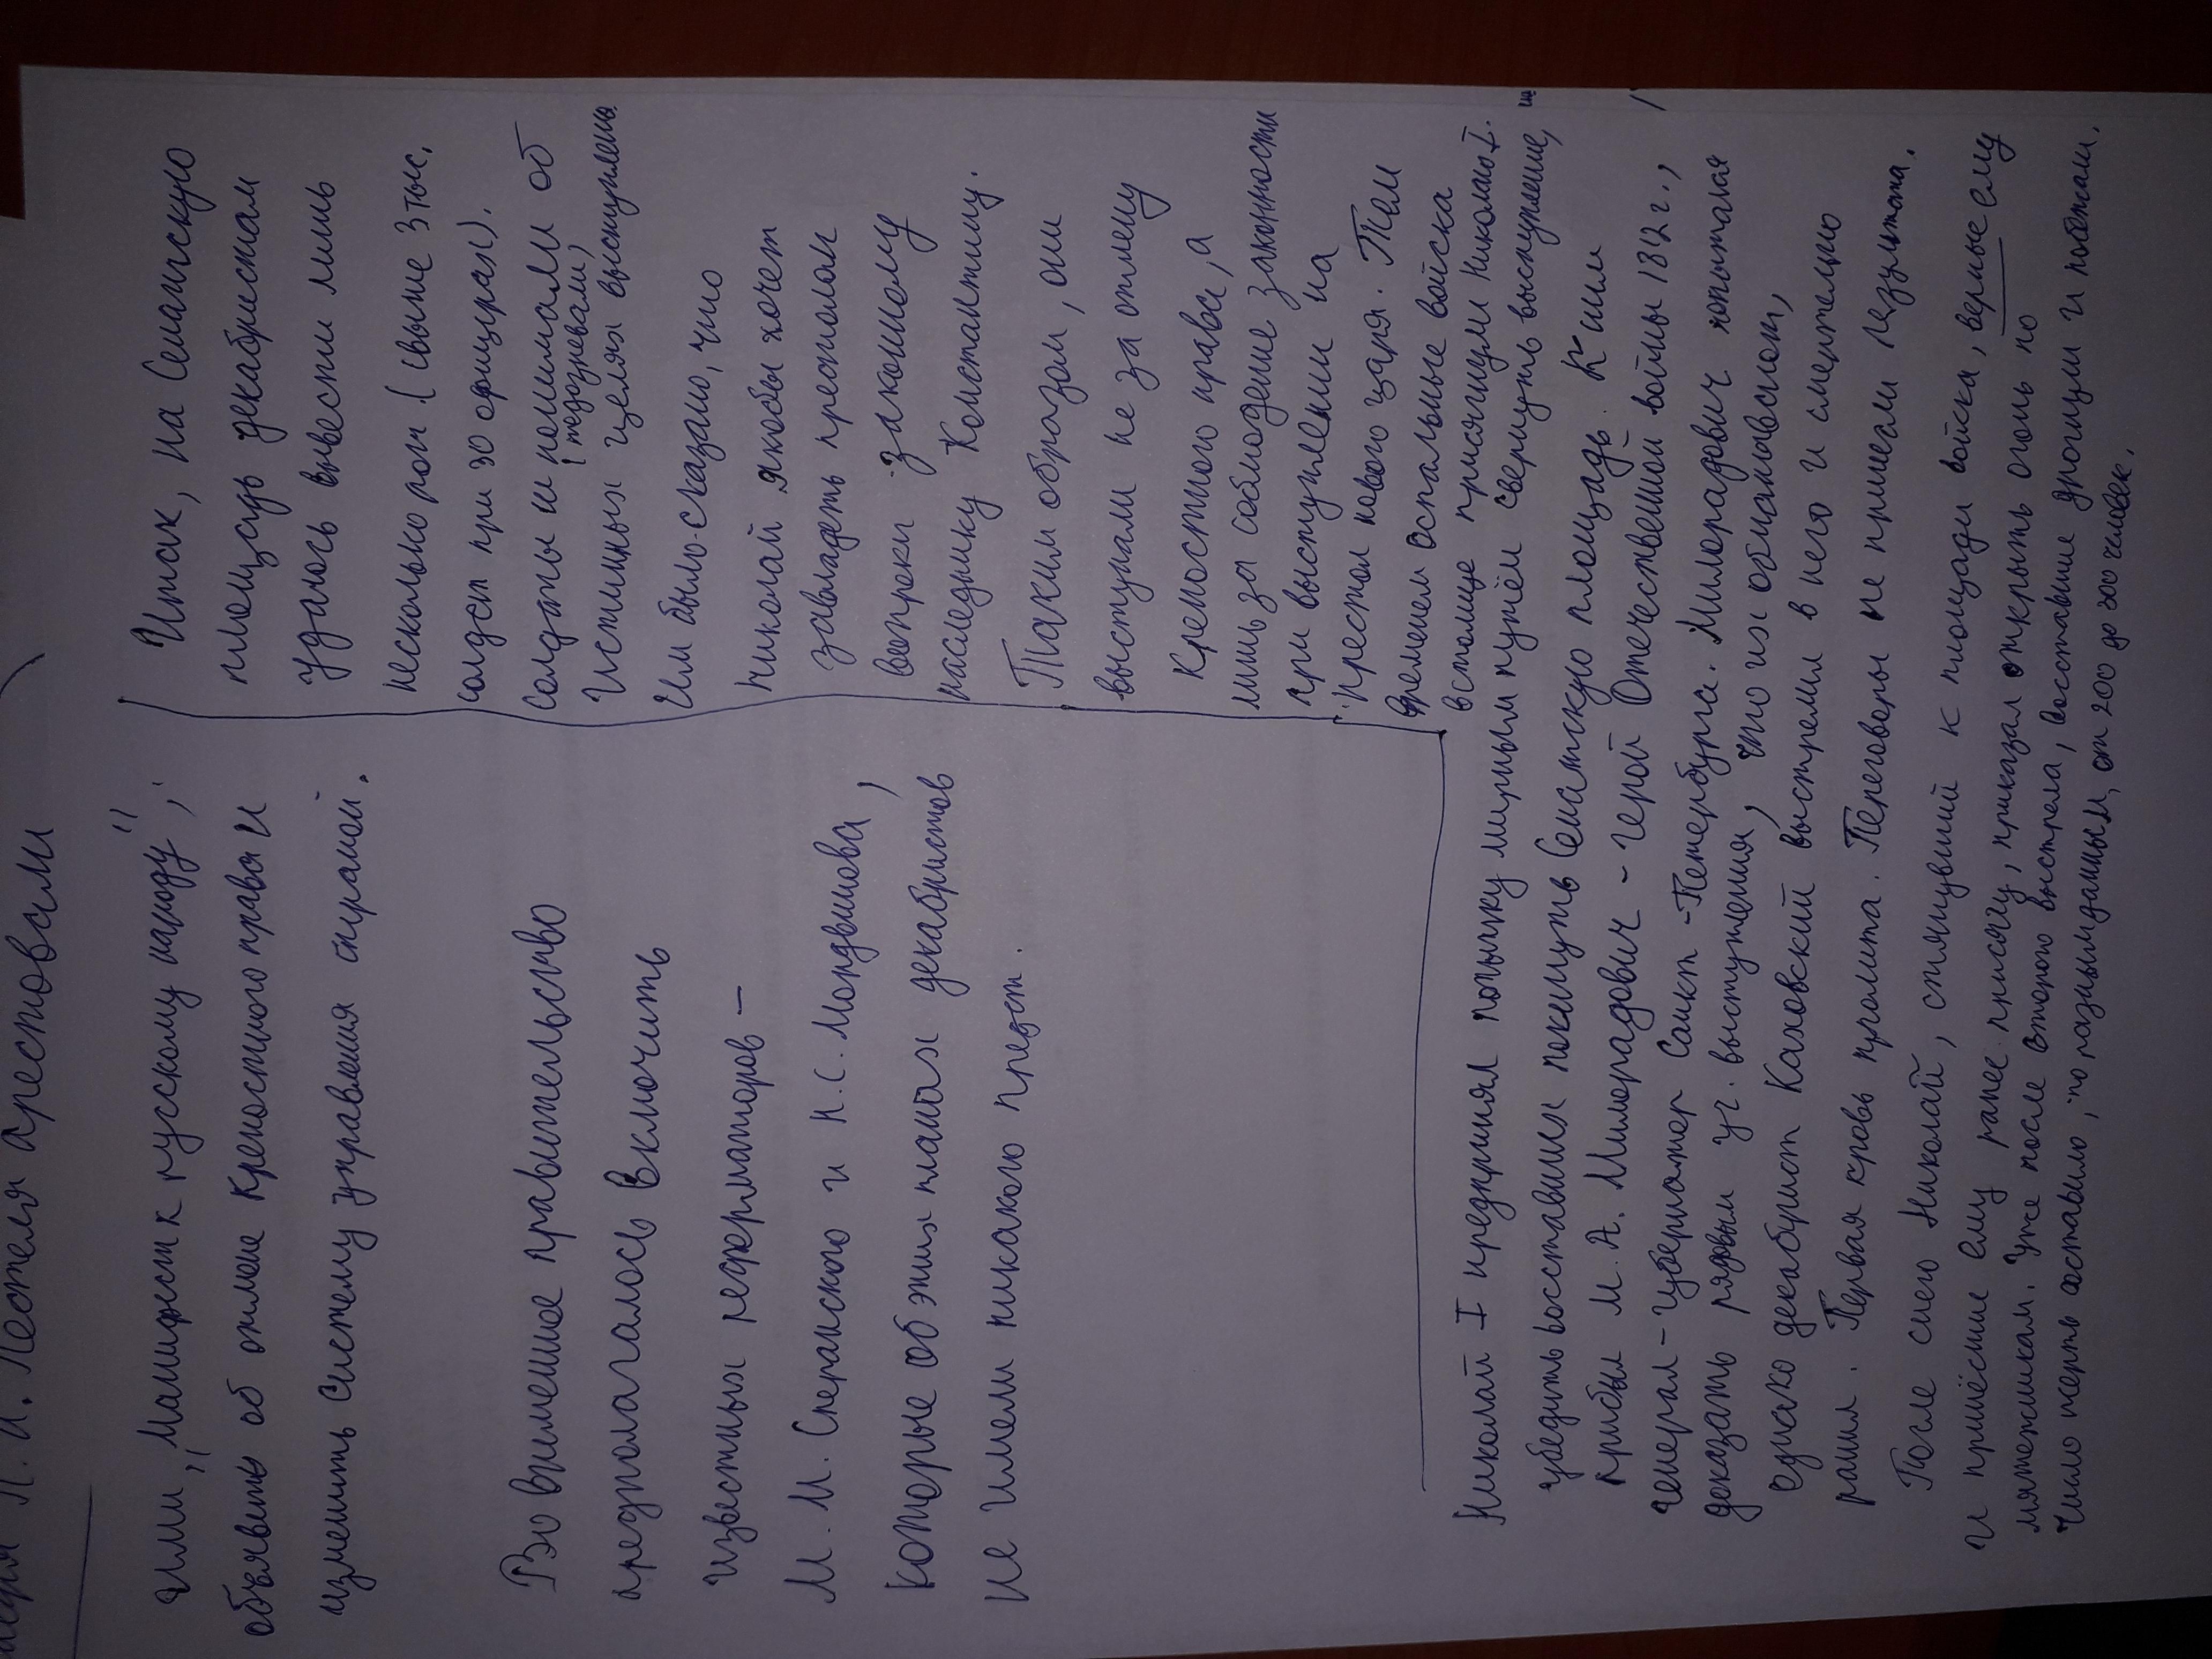 П. И. Пестеля арестовали
ими „Манифест к русскому народу",
объявить об отмене крепостного права и
изменить систему управления страной.
Во временное правительство
предполагалось включить
известных реформаторов –
М. М. Сперанского и Н. С. Мордвинова,
которые об этих планах декабристов
не имели никакого предст.
Итак, на Сенатскую
площадь декабристам
удалось вывести лишь
несколько рот (свыше 3 тыс.
солдат при 30 офицерах).
Солдаты не понимали об
(подозревали)
Истинных целях выступлень
Им было сказано, что
Николай якобы хочет
завладеть престолом
вопреки законному
наследнику Константину.
Таким образом, они
выступали не за отмену
крепостного права, а
лишь за соблюдение законности
при выступлении на
престол нового царя. Тем
временем остальные войска
в столице присягнули Николаю I.
Николай I предпринял попытку мирным путём свернуть выступление,
убедить восставших покинуть Сенатскую площадь. К ним
прибыл М. А. Милорадович – герой Отечественной войны 1812 г.,
генерал-губернатор Санкт-Петербурга. Милорадович попытался
доказать рядовым уч. выступления, что их обманывают,
однако декабрист Каховский выстрелил в него и смертельно
ранил. Первая кровь пролита. Переговоры не принесли результата.
После сего Николай, стянувший к площади войска, верные ему
и принёсшие ему ранее присягу, приказал открыть огонь по
мятежникам. Уже после второго выстрела, восставшие дрогнули и побежали.
Число жертв составило, по разным данным, от 200 до 300 человек.